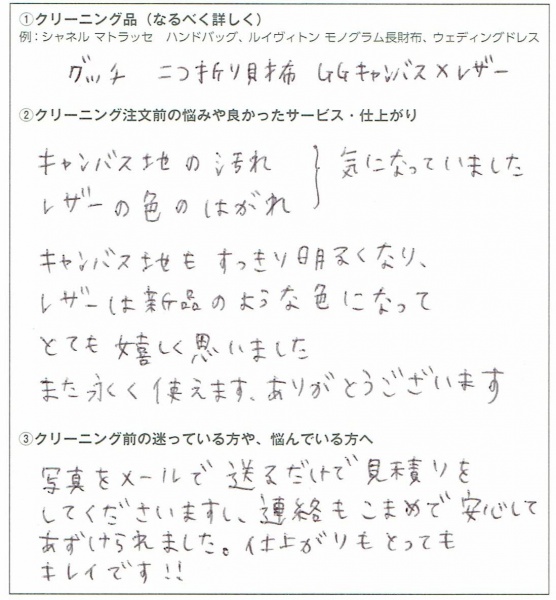 ①クリーニング品（なるべく詳しく）
例：シャネル マトラッセ　ハンドバッグ、ルイヴィトン モノグラム長財布、ウェディングドレス
グッチ　二つ折り財布　GGキャンバス×レザー
②クリーニング注文前の悩みや良かったサービス・仕上がり
キャンバス地の汚れ
レザーの色のはがれ
} 気になっていました
キャンバス地もすっきり明るくなり、
レザーは新品のような色になって
とても嬉しく思いました
また永くく使えます、ありがとうございます
③クリーニング前の迷っている方や、悩んでいる方へ
写真をメールで送るだけで見積りを
してくださいますし、連絡もこまめで安心して
あずけられました。仕上がりもとっても
キレイです!!